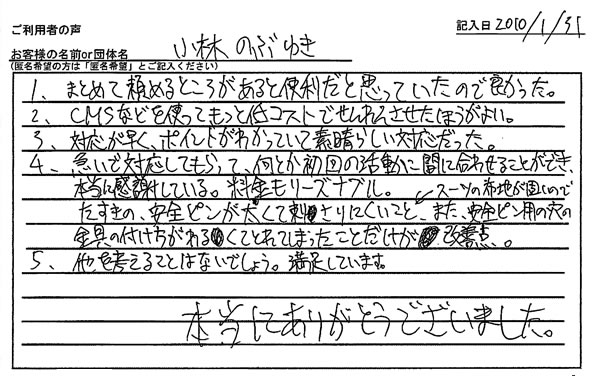 ご利用者の声
記入日 2010/1/31
お客様の名前or団体名 小林 のぶゆき
(匿名希望の方は「匿名希望」とご記入ください)
1、まとめて頼めるところがあると便利だと思っていたので良かった。
2、CMSなどを使ってもっと低コストでせんれんさせたほうがよい。
3、対応が早く、ポイントがわかっていて素晴らしい対応だった。
4、急いで対応してもらって、何とか初回の活動に間に合わせることができ、
本当に感謝している。料金もリーズナブル。
スーツの布地が固いので
たすきの、安全ピンが太くて刺さりにくいこと、また、安全ピン用の穴の
金具の付け方がわるくてとれてしまったことだけが改善点。
5、他を考えることはないでしょう。満足しています。
本当にありがとうございました。